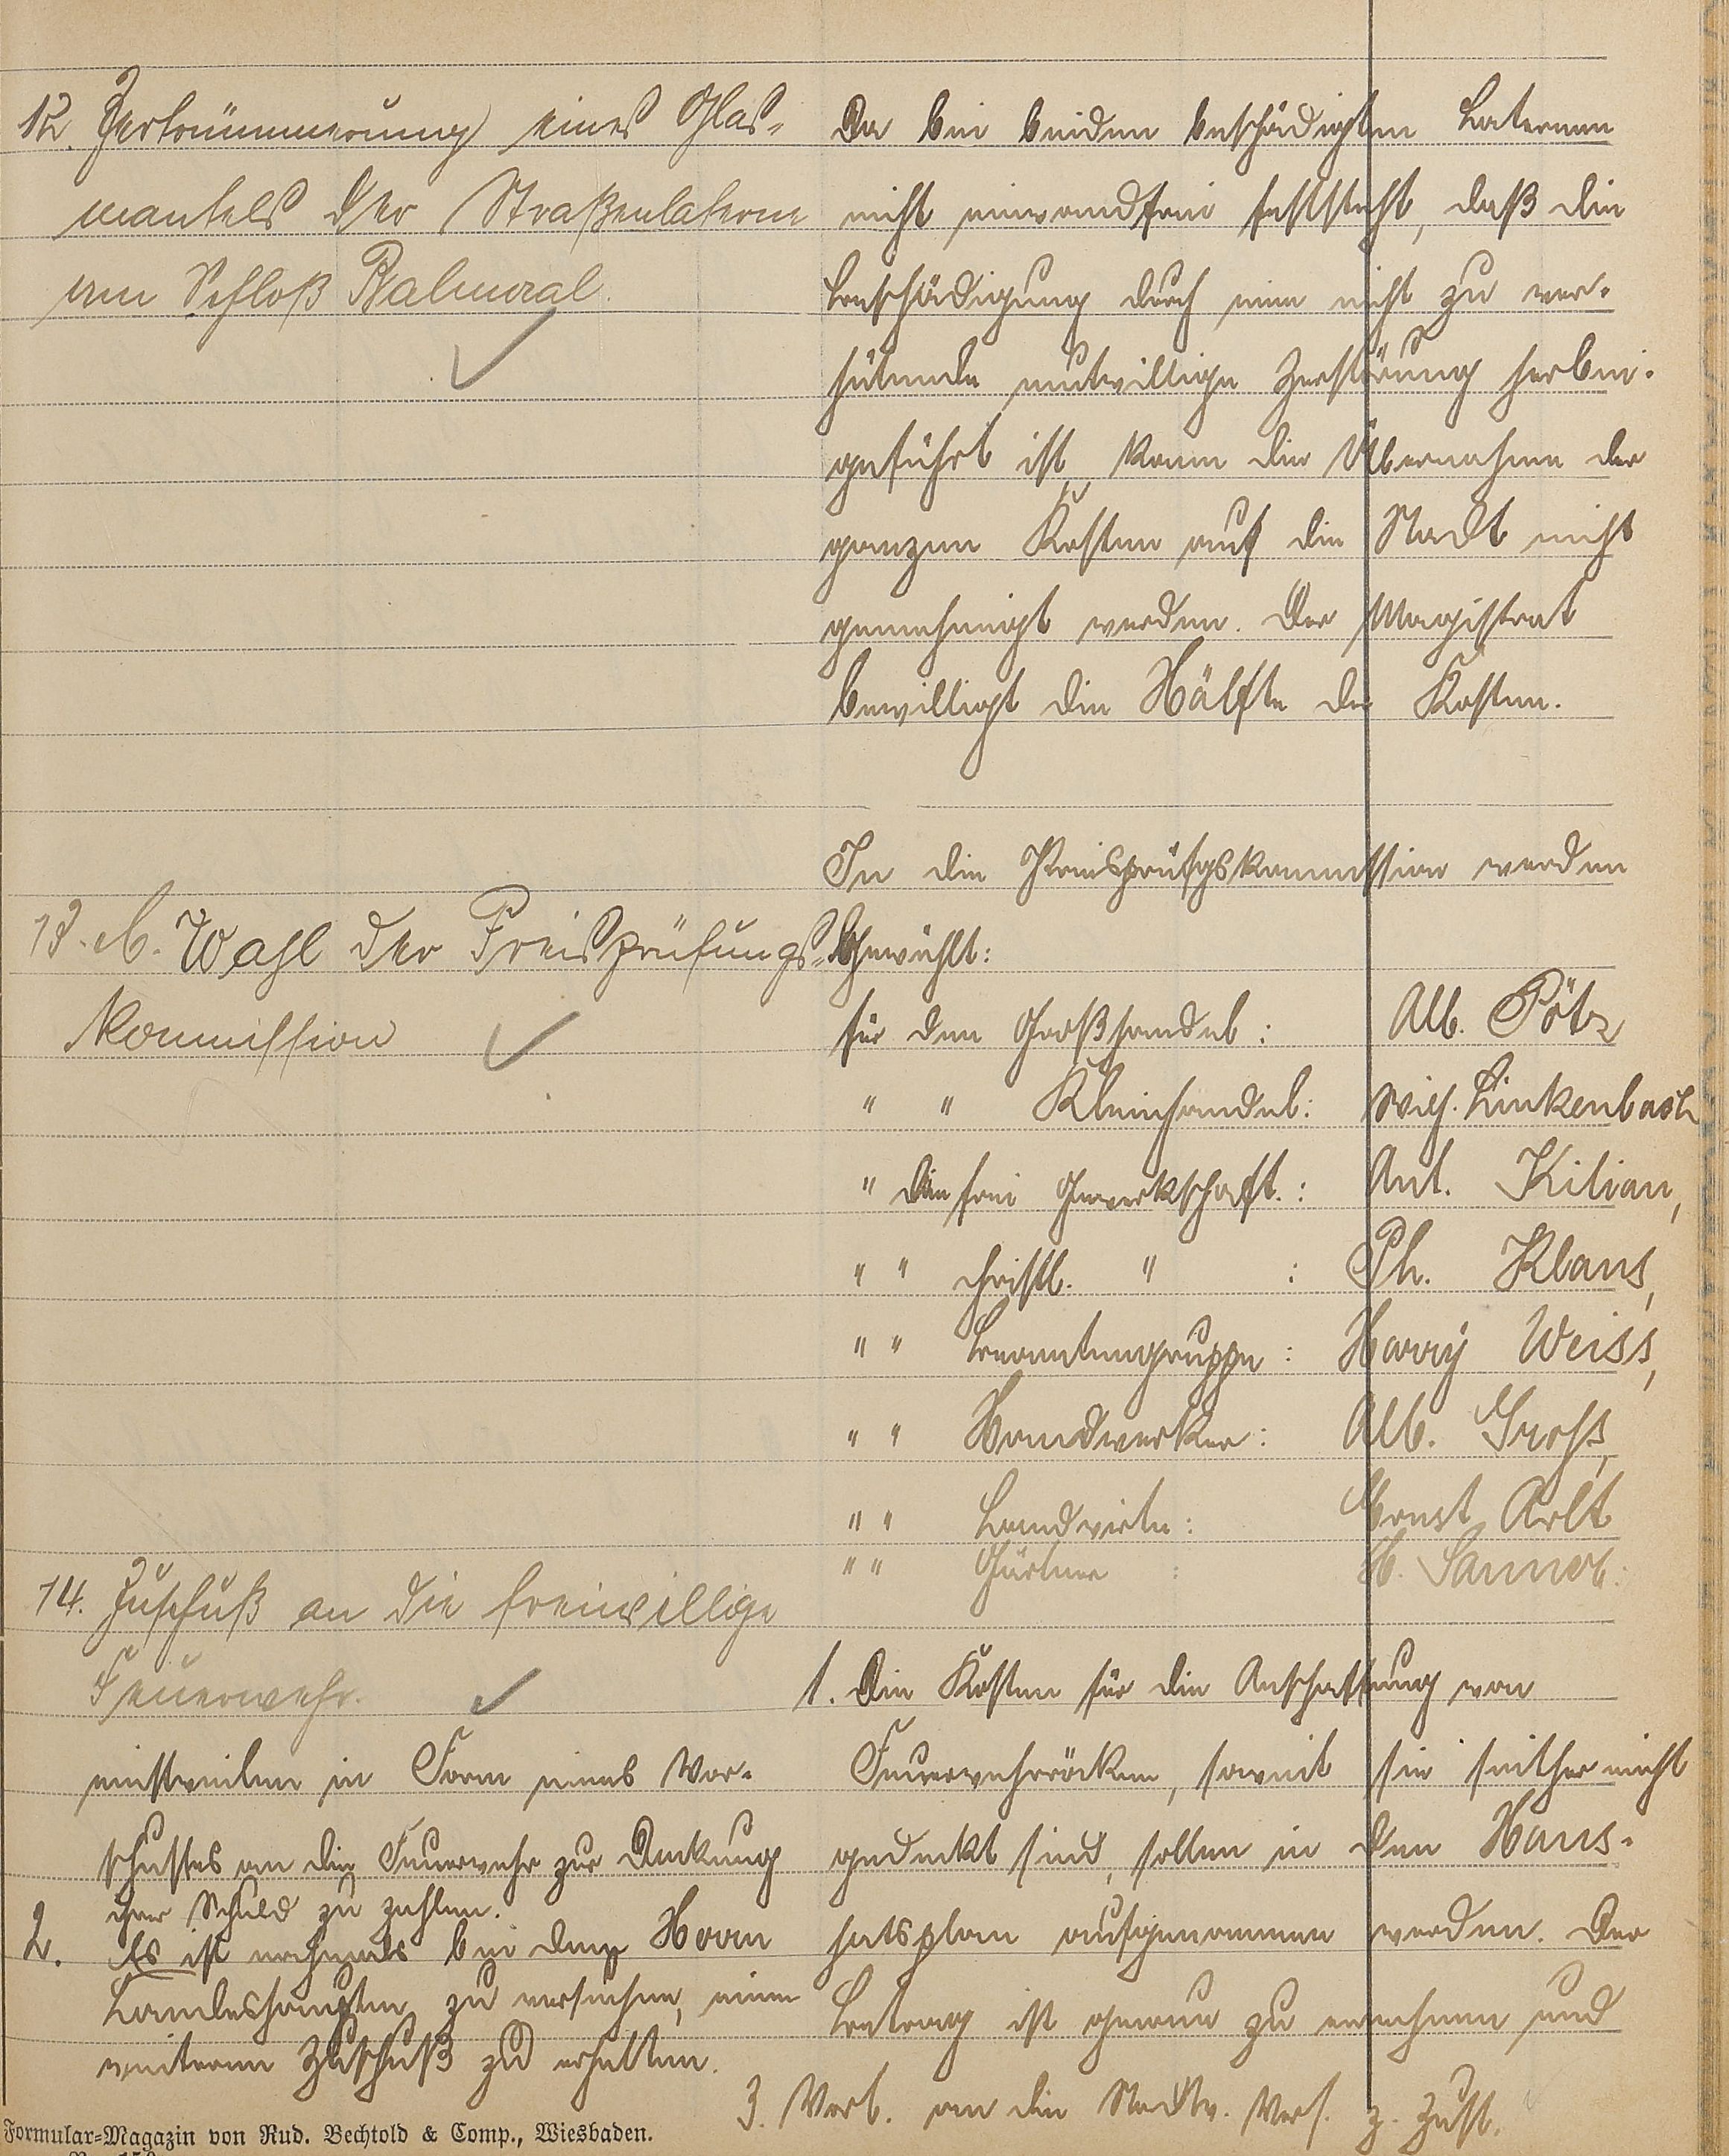 12. Zertrümmerung eines Glas-
mantels der Straßenlaterne
am Schloß Balmoral.
Da bei beiden beschädigten Laternen
nicht einwandfrei feststeht, daß die
Beschädigung durch eine nicht zu ver-
hütende mutwillige Zerstörung herbei-
geführt ist, kann die Übernahme der
ganzen Kosten auf die Stadt nicht
genehmigt werden. Der Magistrat
bewilligt die Hälfte der Kosten.
13. Wahl der Preisprüfungs-
kommission
In die Preisprüfgskommission werden
gewählt:
für den Großhandel: Alb. Pötz
" " Kleinhandel: Wilh. Linkenbach
" die frei Gewerkschaft.: Ant. Kilian,
" " christl. " : Ph. Klaus,
" " Beamtengruppe: Harry Weiss,
" " Handwerker: Alb. Groß,
" " Landwirte: Ernst Arlt
" " Gärtner : H. Sanner.
14. Zuschuß an die freiwillige
Feuerwehr.
1. Die Kosten für die Anschaffung von
Feuerwehrröcken, soweit sie seither nicht
gedeckt sind, sollen in den Haus-
hatsplan aufgenommen werden. Der
Betrag ist genau zu errechnen und
einstweilen in Form eines Vor-
schusses an die Feuerwehr zur Deckung
ihrer Schuld zu zahlen.
2. Es ist nochmals bei dem Herrn
Landeshauptm. zu versuchen, einen
weiteren Zuschuß zu erhalten.
3. Vorl. an die Stadtv. Vers. z. Zust.
Formular-Magazin von Rud. Bechtold & Comp., Wiesbaden.